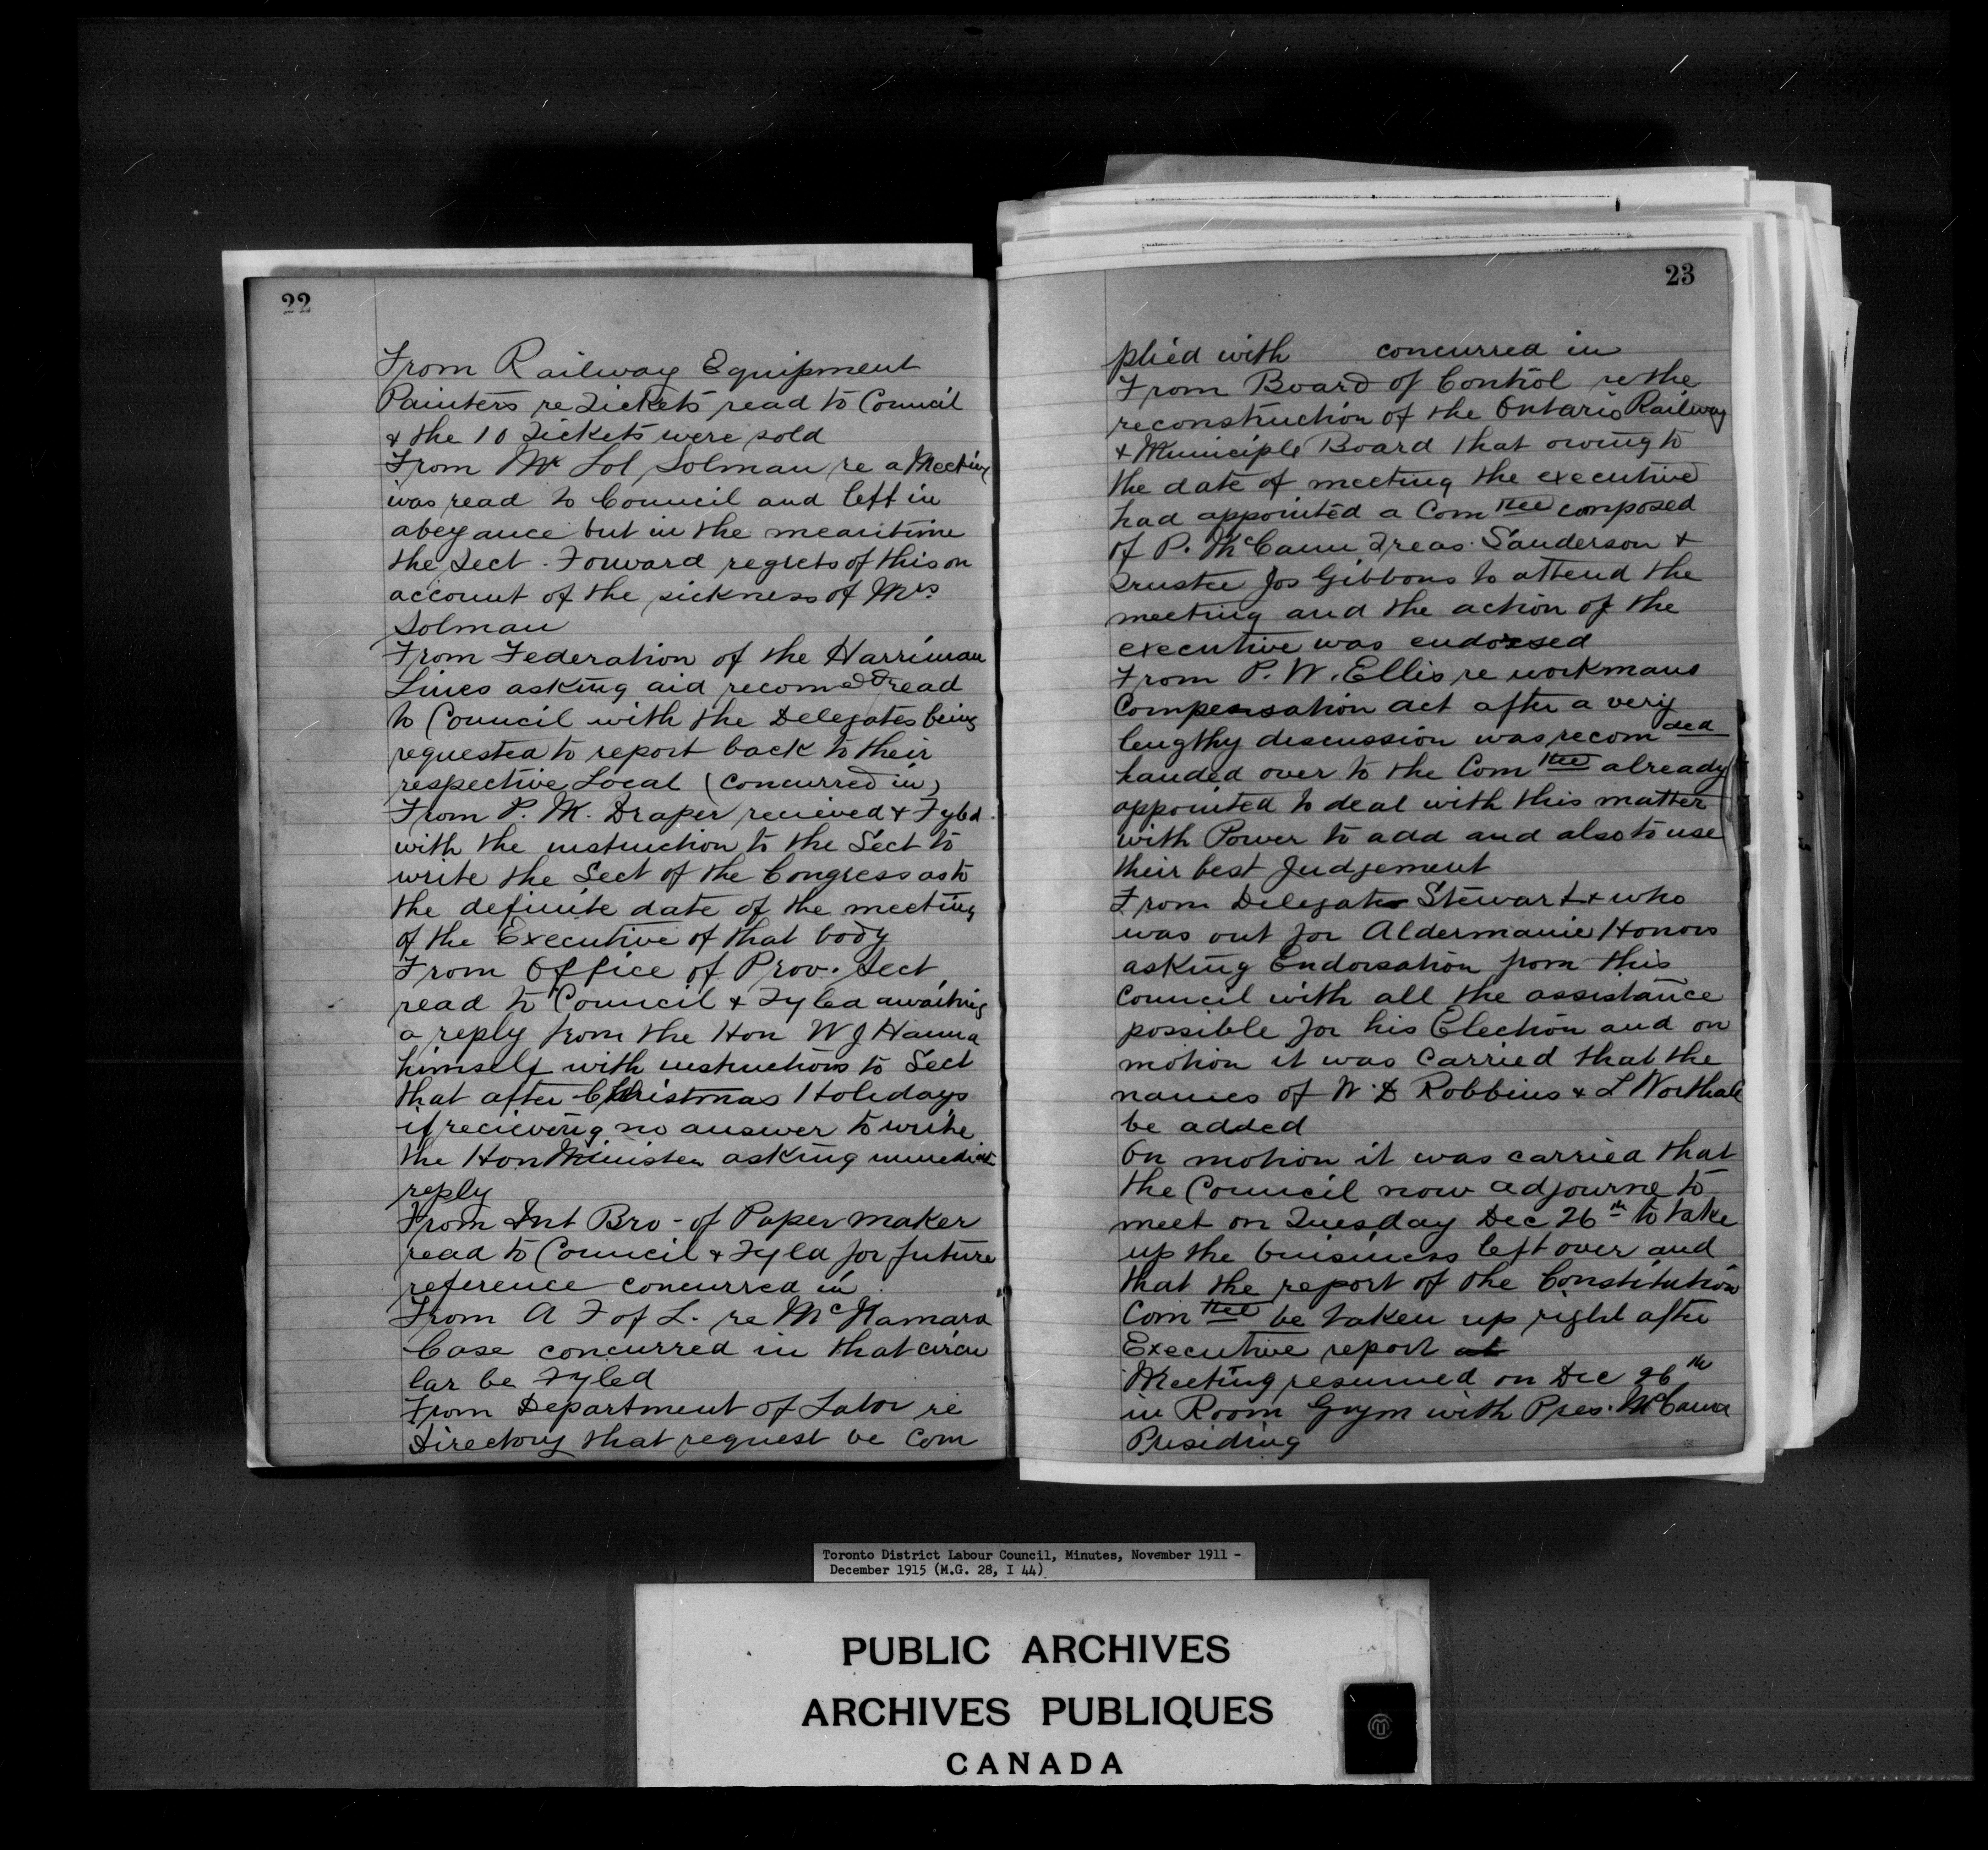 22
From Railway Equipment
Painters re Tickets read to Council
& the 10 Tickets were sold
From Mr Sol Solman re a Meeting
was read to Council and left in
abeyance but in the meantime
the Sect. Forward regrets of this on
account of the sickness of Mrs
Solman
From Federation of the Harriman
Lines asking aid recomed read
to Council with the Delegates being
requested to report back to their
respective Local (concurred in)
From P. M. Draper recieved & Fyled
with the instruction to the Sect to
write the Sect of the Congress as to
the definite date of the meeting
of the Executive of that body
From Office of Prov. Sect
read to Council & Fyled awaiting
a reply from the Hon W J Hanna
himself with instructions to Sect
that after Christmas Holidays
if recieving no answer to write
the Hon Minister asking immediate
reply
From Int Bro - of Paper maker
read to Council & Fyled for future
reference concurred in
From A F of L. re McNamara
Case concurred in that circu
lar be Fyled
From Department of Labor re
Directory that request be com
23
plied with concurred in
From Board of Control re the
reconstruction of the Ontario Railway
& Municiple Board that owing to
the date of meeting the executive
had appointed a Com ttee composed
of P. McCann Treas. Sanderson &
Trustee Jos Gibbons to attend the
meeting and the action of the
executive was endorsed
From P. W. Ellis re workmans
Compensation act after a very
lengthy discussion was recom ded
handed over to the Com ttee already
appointed to deal with this matter
with Power to add and also to use
their best Judgement
From Delegate Stewart & who
was out for Aldermanic Honors
asking Endorsation from this
Council with all the assistance
possible for his Election and on
motion it was carried that the
names of W. D Robbins & L Northale
be added
On motion it was carried that
the Council now adjourne to
meet on Tuesday Dec 26th to take
up the buisiness left over and
that the report of the Constitution
Com ttee be taken up right after
Executive report at
Meeting resumed on Dec 26th
in Room Gym with Pres. McCann
Presiding
Toronto District Labour Council, Minutes, November 1911 -
December 1915 (M.G. 28, I 44)
PUBLIC ARCHIVES
ARCHIVES PUBLIQUES
CANADA